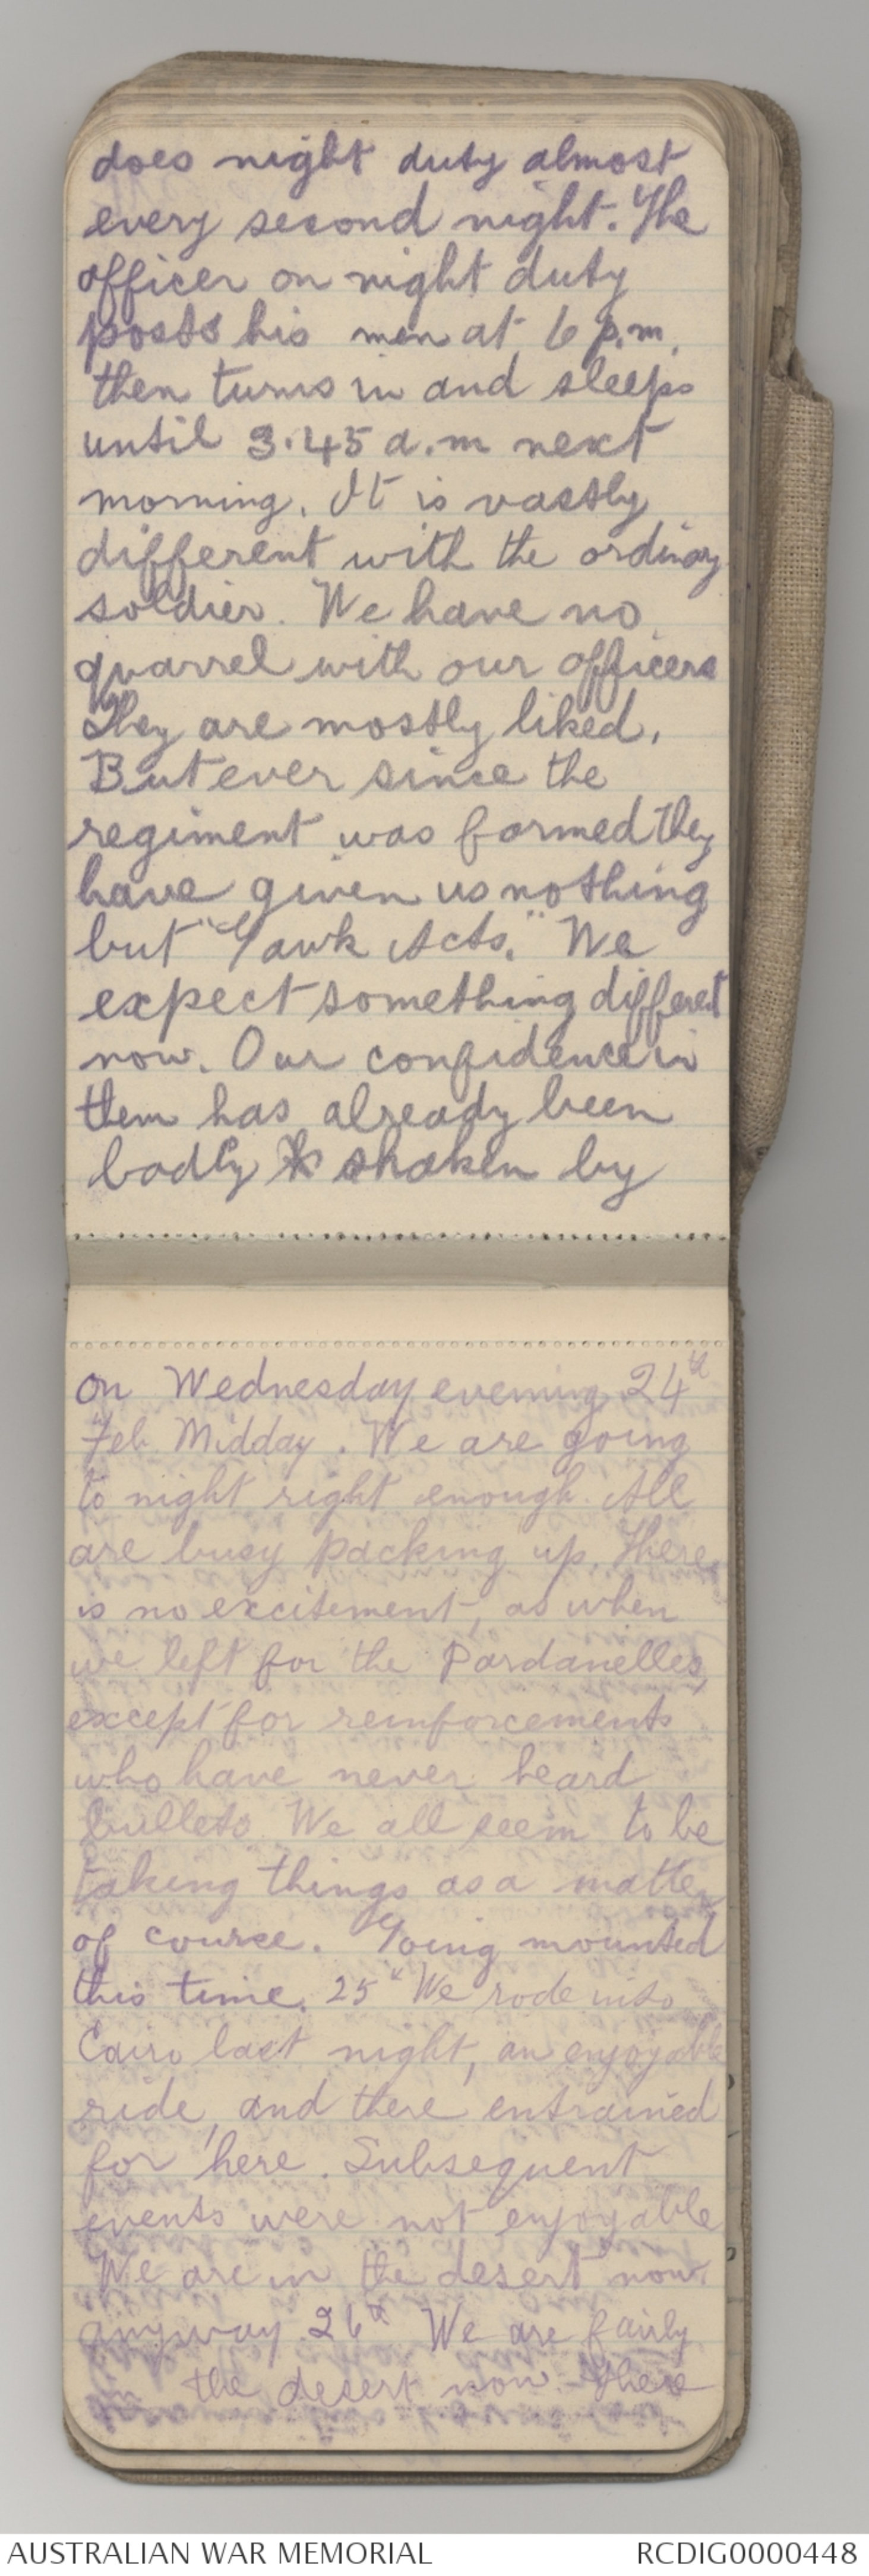 does night duty almost
every second night. The
officer on night duty
posts his men at 6 p.m.
then turns in and sleeps
until 3.45 a.m next
morning. It is vastly
different with the ordinary
soldier. We have no
quarrel with our officers
They are mostly liked.
But ever since the
regiment was formed they
have given us nothing
but "Gawk Acts." We
expect something different
now. Our confidence in
them has already been
badly shaken by
on Wednesday evening 24th
Feb. Midday. We are going
to night right enough. All
are busy packing up. There
is no excitement, as when
we left for the Dardanelles,
except for reinforcements
who have never heard
bullets. We all seem to be
taking things as a matter
of course. Going mounted
this time. 25th We rode into
Cairo last night, an enjoyable
ride, and there entrained
for here. Subsequent
events were not enjoyable
We are in the desert now
anyway. 26th We are fairly
in the desert now. There
AUSTRALIAN WAR MEMORIAL
RCDIG0000448